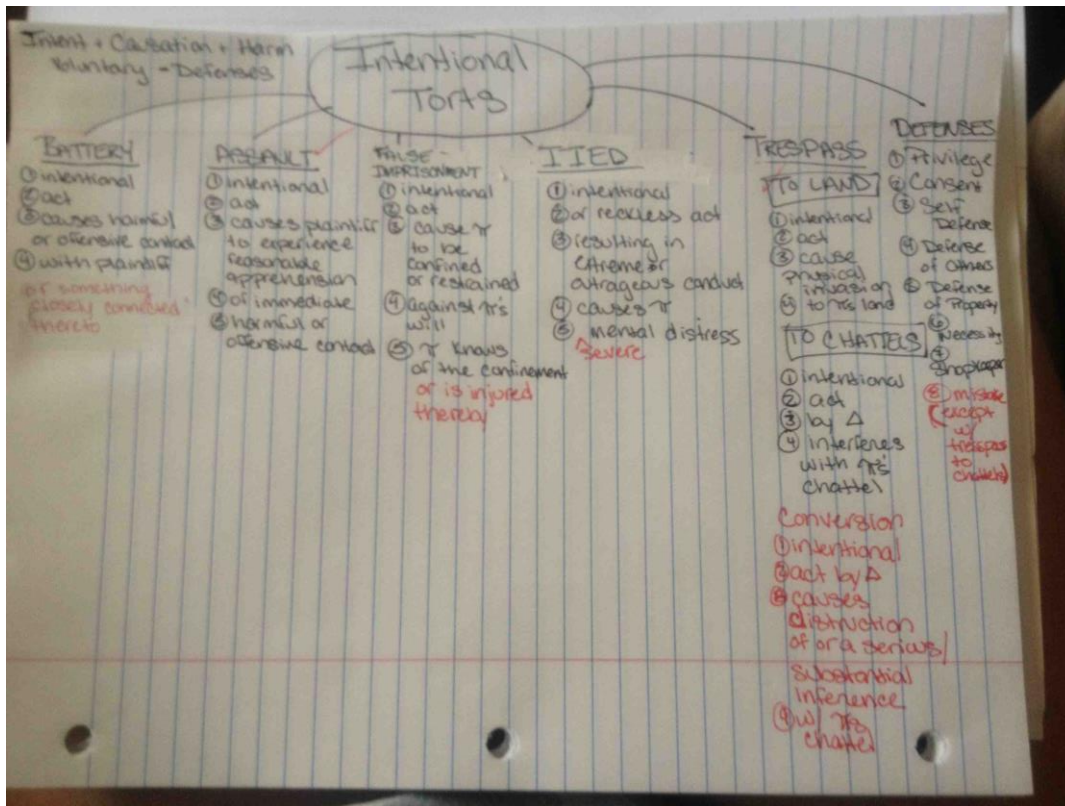 Intent + Causation + Harm
Voluntary - Defenses
Intentional
Torts
BATTERY
① intentional
② act
③ causes harmful
or offensive contact
④ with plaintiff
or something
closely connected
thereto
ASSAULT
① intentional
② act
③ causes plaintiff
to experience
reasonable
apprehension
④ of immediate
⑤ harmful or
offensive contact
FALSE -
IMPRISONMENT
① intentional
② act
③ cause π
to be
confined
or restrained
④ against π's
will
⑤ π knows
of the confinement
or is injured
thereby
IIED
① intentional
② or reckless act
③ resulting in
extreme or
outrageous conduct
④ causes π
⑤ mental distress
severe
TRESPASS
TO LAND
① intentional
② act
③ cause
physical
invasion
④ to π's land
TO CHATTELS
① intentional
② act
③ by Δ
④ interferes
with π's
chattel
Conversion
① intentional
② act by Δ
③ causes
distruction
of or a serious/
substantial
inference
④ w/ π's
chattel
DEFENSES
① Privilege
② Consent
③ Self
Defense
④ Defense
of others
⑤ Defense
of Property
⑥
Necessity
⑦
Shopkeeper
⑧ mistake
(except
w/
trespass
to
chattels)